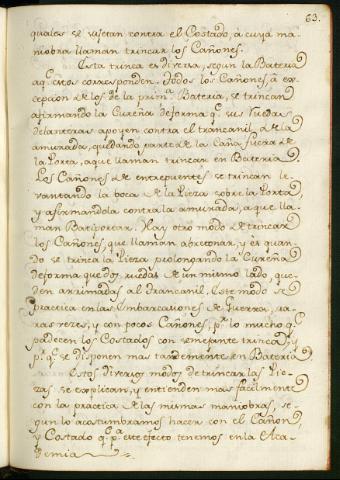 63.
quales se sujetan contra el Costado, á cuya ma-
niobra llaman trincar los Cañones.
Esta trinca es diversa, segun la Bateria
aq.e estos corresponden. Todos los Cañones, á ex-
cepcion de los de la prim.a Bateria, se trincan
afirmando la Cureña de forma q.e sus Ruedas
delanteras apoyen contra el trancanil de la
amurada, quedando parte de la Caña fuera de
la Porta, a que llaman trincar en Bateria.
Los Cañones de entrepuentes se trincan le-
vantando la boca de la Pieza sobre la Porta,
y afirmandola contra la amurada, a que lla-
man Batiportar. Hay otro modo de trincar
los Cañones, que llaman abretonar, y és quan-
do se trinca la Pieza prolongando la Cureña
de forma que dos ruedas de un mismo lado, que-
den arrimadas al Trancanil. Este modo se
practica en las Embarcaciones de Guerra, ra-
ras vezes, y con pocos Cañones, p.r lo mucho q.e
padecen los Costados con semejante trinca, y
p.r q.e se disponen mas tardemente en Bateria.
Estos diversos modos de trincar las Pie-
zas se explican, y entienden mas facilmente
con la practica de las mismas maniobras, se-
gun lo acostumbramos hacer con el Cañon,
y Costado q.e p.a este efecto tenemos en la Aca-
demia